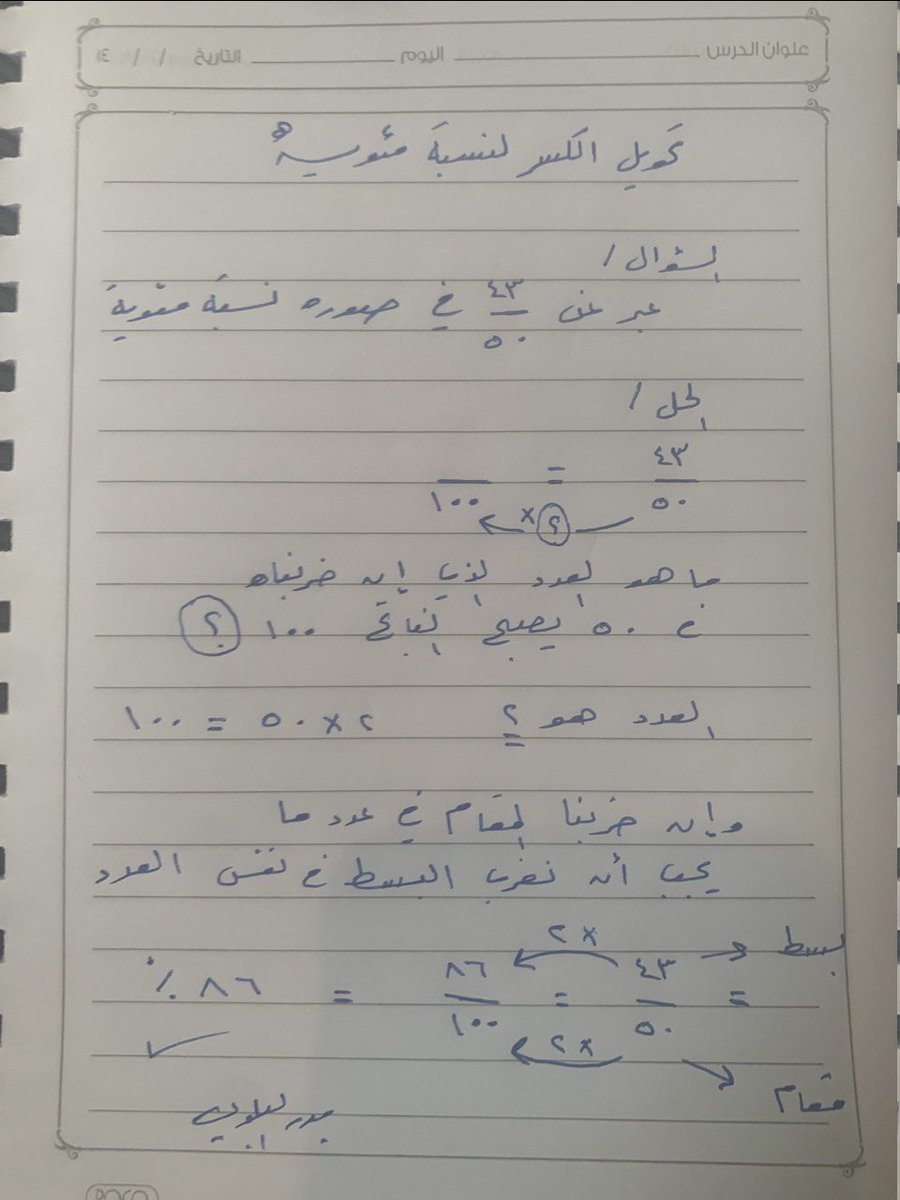 عنوان الدرس اليوم التاريخ / / ١٤
تحويل الكسر لنسبة مئوية
السؤال /
عبر عن ٤٣/٥٠ في صوره نسبة مئوية
الحل /
٤٣ =
٥٠ ١٠٠
× ؟
ما هو العدد الذي إن ضربناه
في ٥٠ يصبح الناتج ١٠٠ ؟
العدد هو ٢ ٢ × ٥٠ = ١٠٠
وإن ضربنا المقام في عدد ما
يجب أن نضرب البسط في نفس العدد
بسط × ٢
= ٤٣/٥٠ = ٨٦/١٠٠ = ٨٦ ٪
× ٢
مقام
بدر البلوي
ROCO